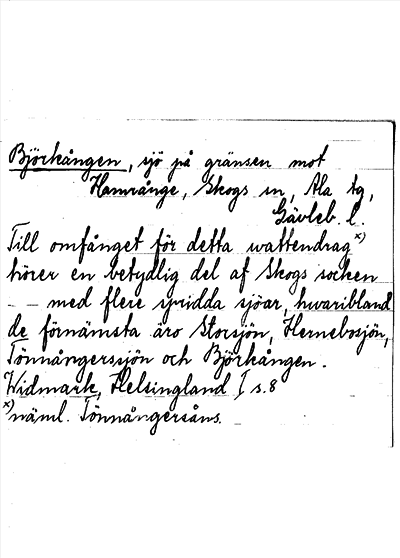 Björkången, sjö på gränsen mot
Hamrånge, Skogs sn, Ala tg,
Gävleb. l.
Till omfånget för detta wattendrag x)
hörer en betydlig del af Skogs socken
– – med flere spridda sjöar, hwaribland
de förnämsta äro Storsjön, Hernebosjön,
Tönnångerssjön och Björkången.
Widmark, Helsingland I s. 8
x) näml. Tönnångersåns.